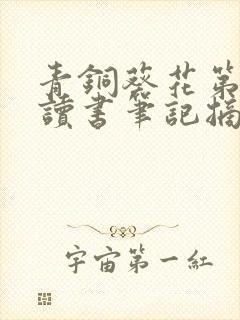 青銅葵花第
讀書筆記摘
宇宙第一紅